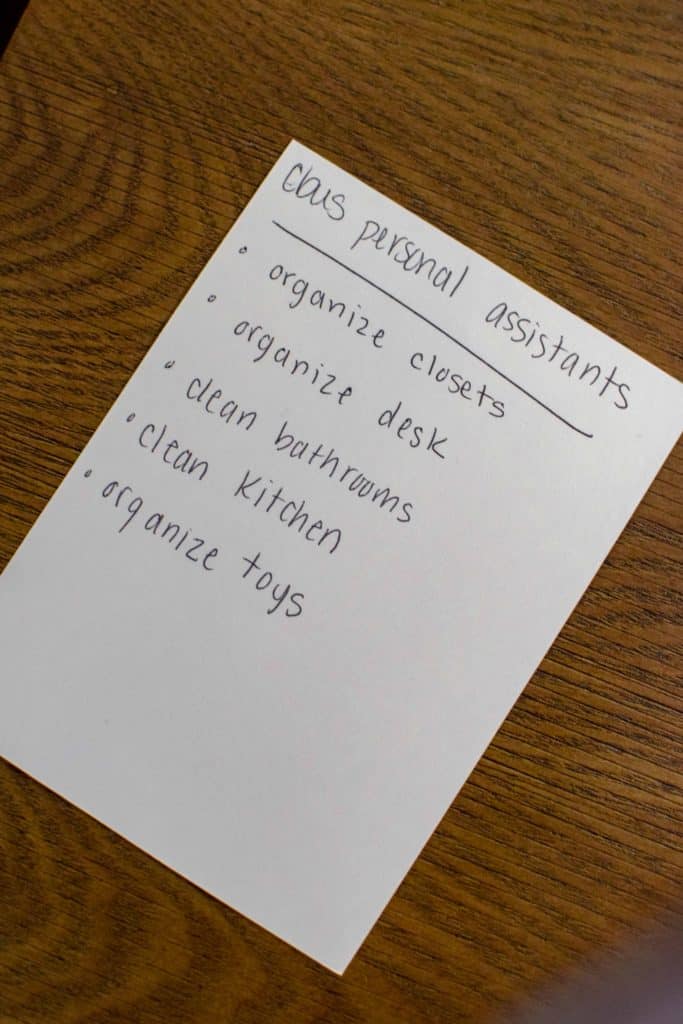 personal assistants
• organize closets
• organize desk
• clean bathrooms
• clean kitchen
• organize toys